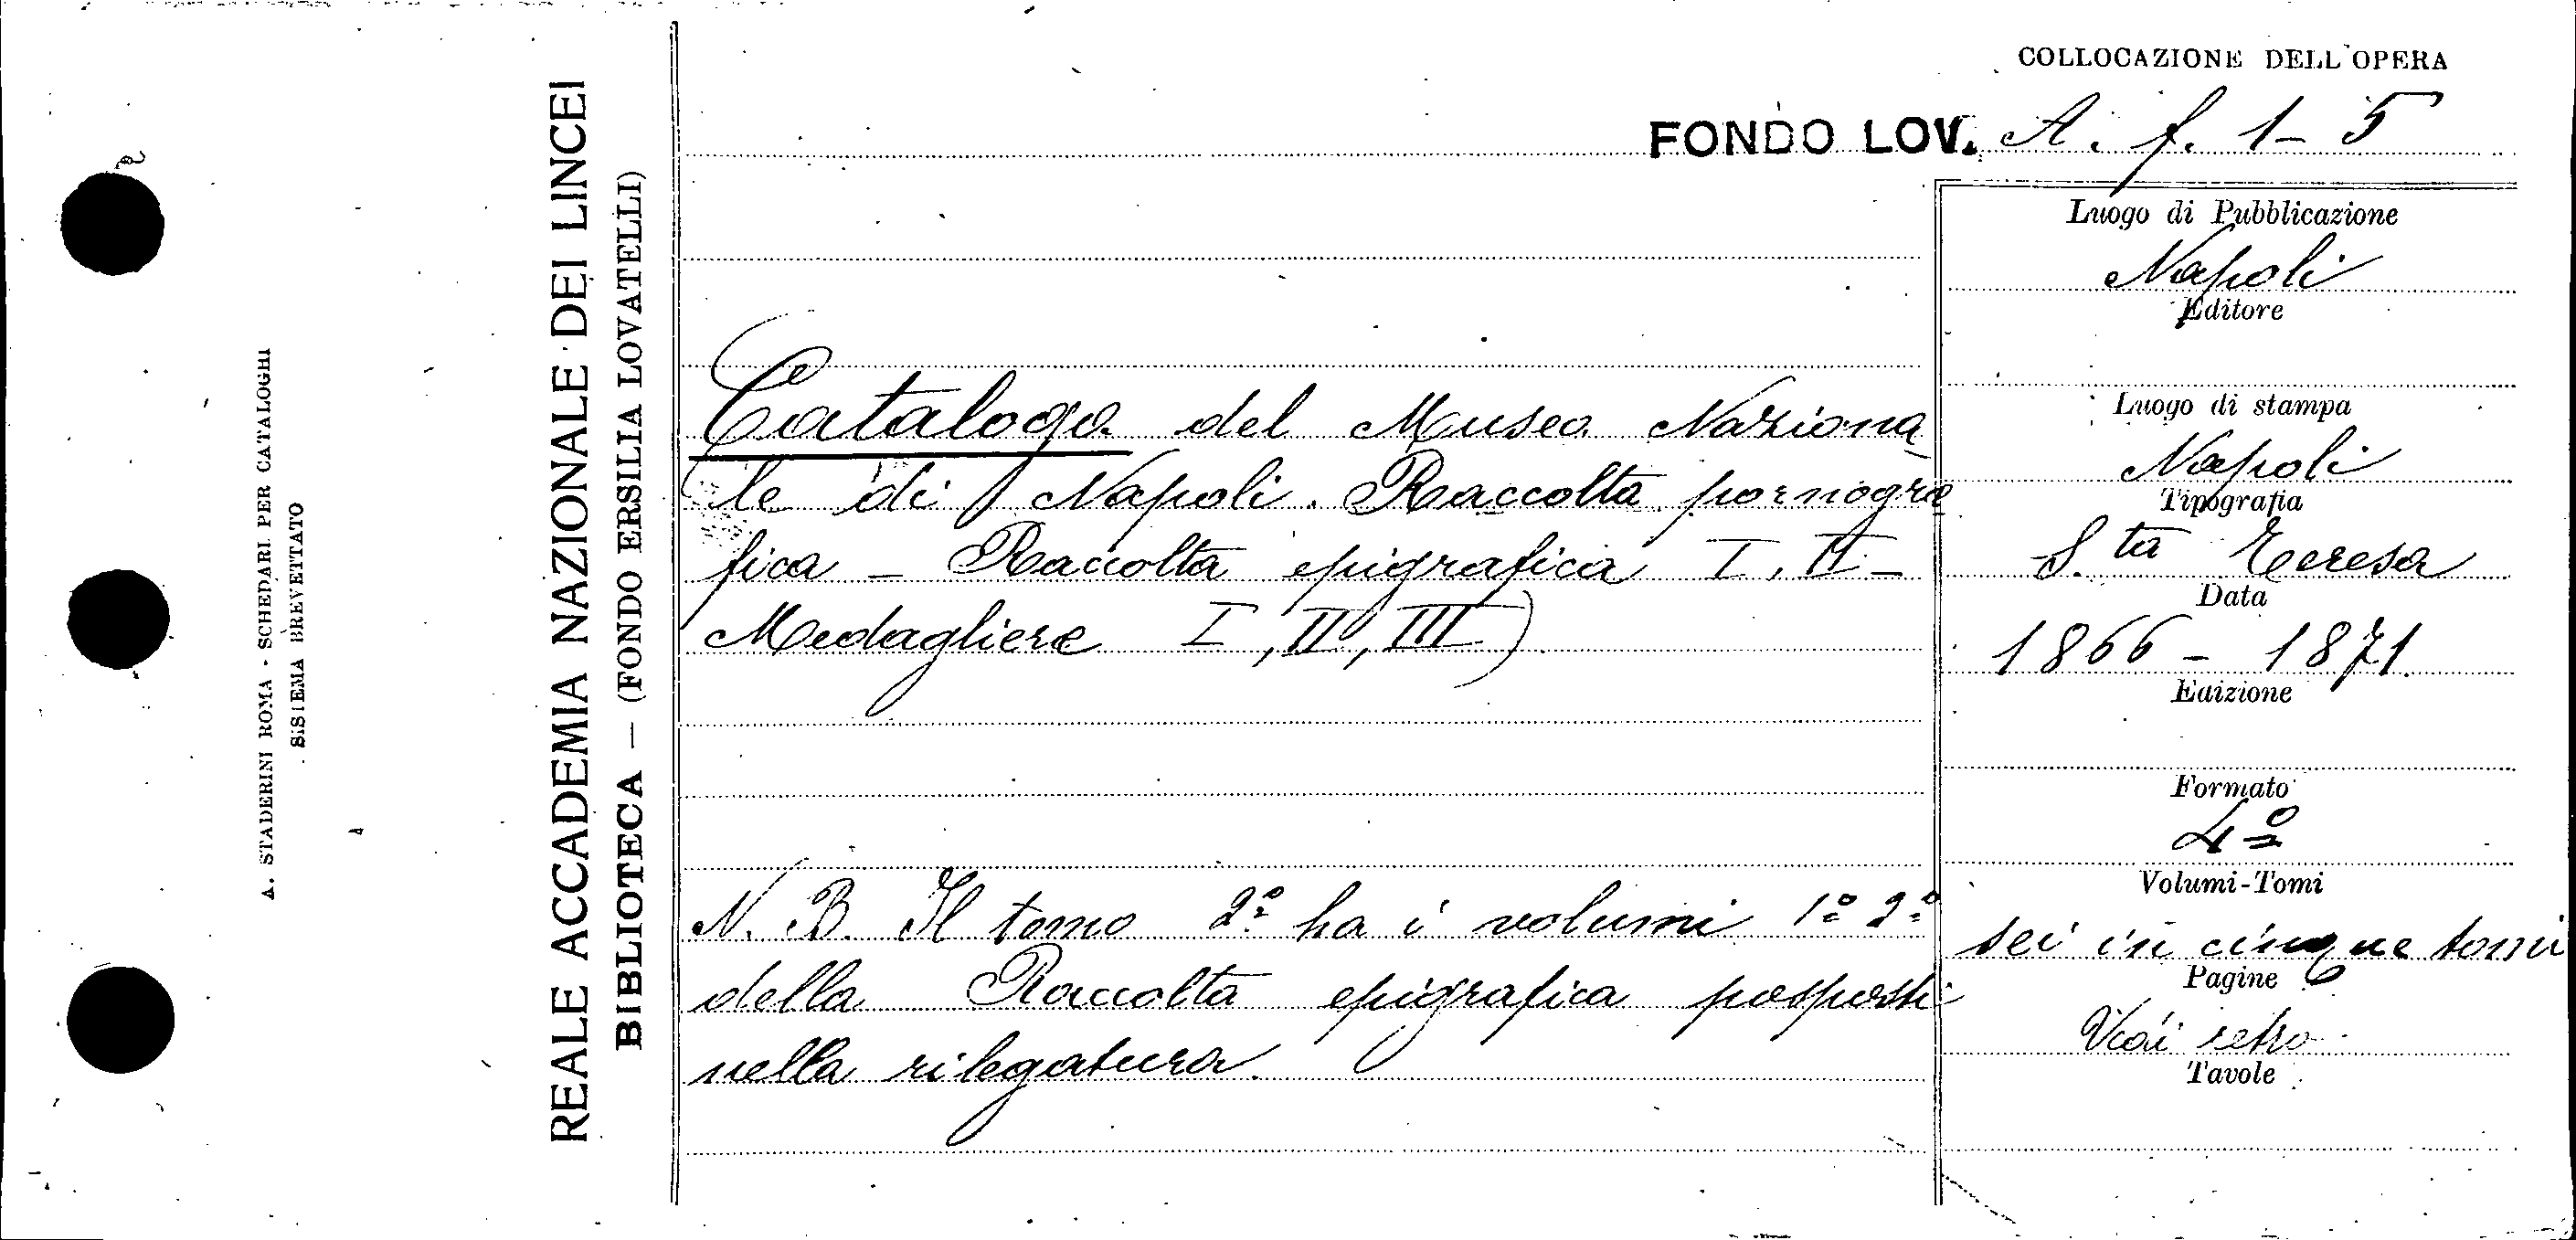 A. STADERINI ROMA - SCHEDARI PER CATALOGHI
SISTEMA BREVETTATO
REALE ACCADEMIA NAZIONALE DEI LINCEI
BIBLIOTECA — (FONDO ERSILIA LOVATELLI)
COLLOCAZIONE DELL'OPERA
FONDO LOV. A. f. 1-5
(Catalogo del Museo Naziona
le di Napoli. Raccolta pornogra
fica - Raccolta epigrafica I, II -
Medagliere I, II, III)
N. B. Il tomo 2º ha i volumi 1º 2º
della Raccolta epigrafica posposti
nella rilegatura.
Luogo di Pubblicazione
Napoli
Editore
Luogo di stampa
Napoli
Tipografia
S.ta Teresa
Data
1866 - 1871.
Edizione
Formato
4º
Volumi-Tomi
sei in cinque tomi
Pagine
Vedi retro
Tavole